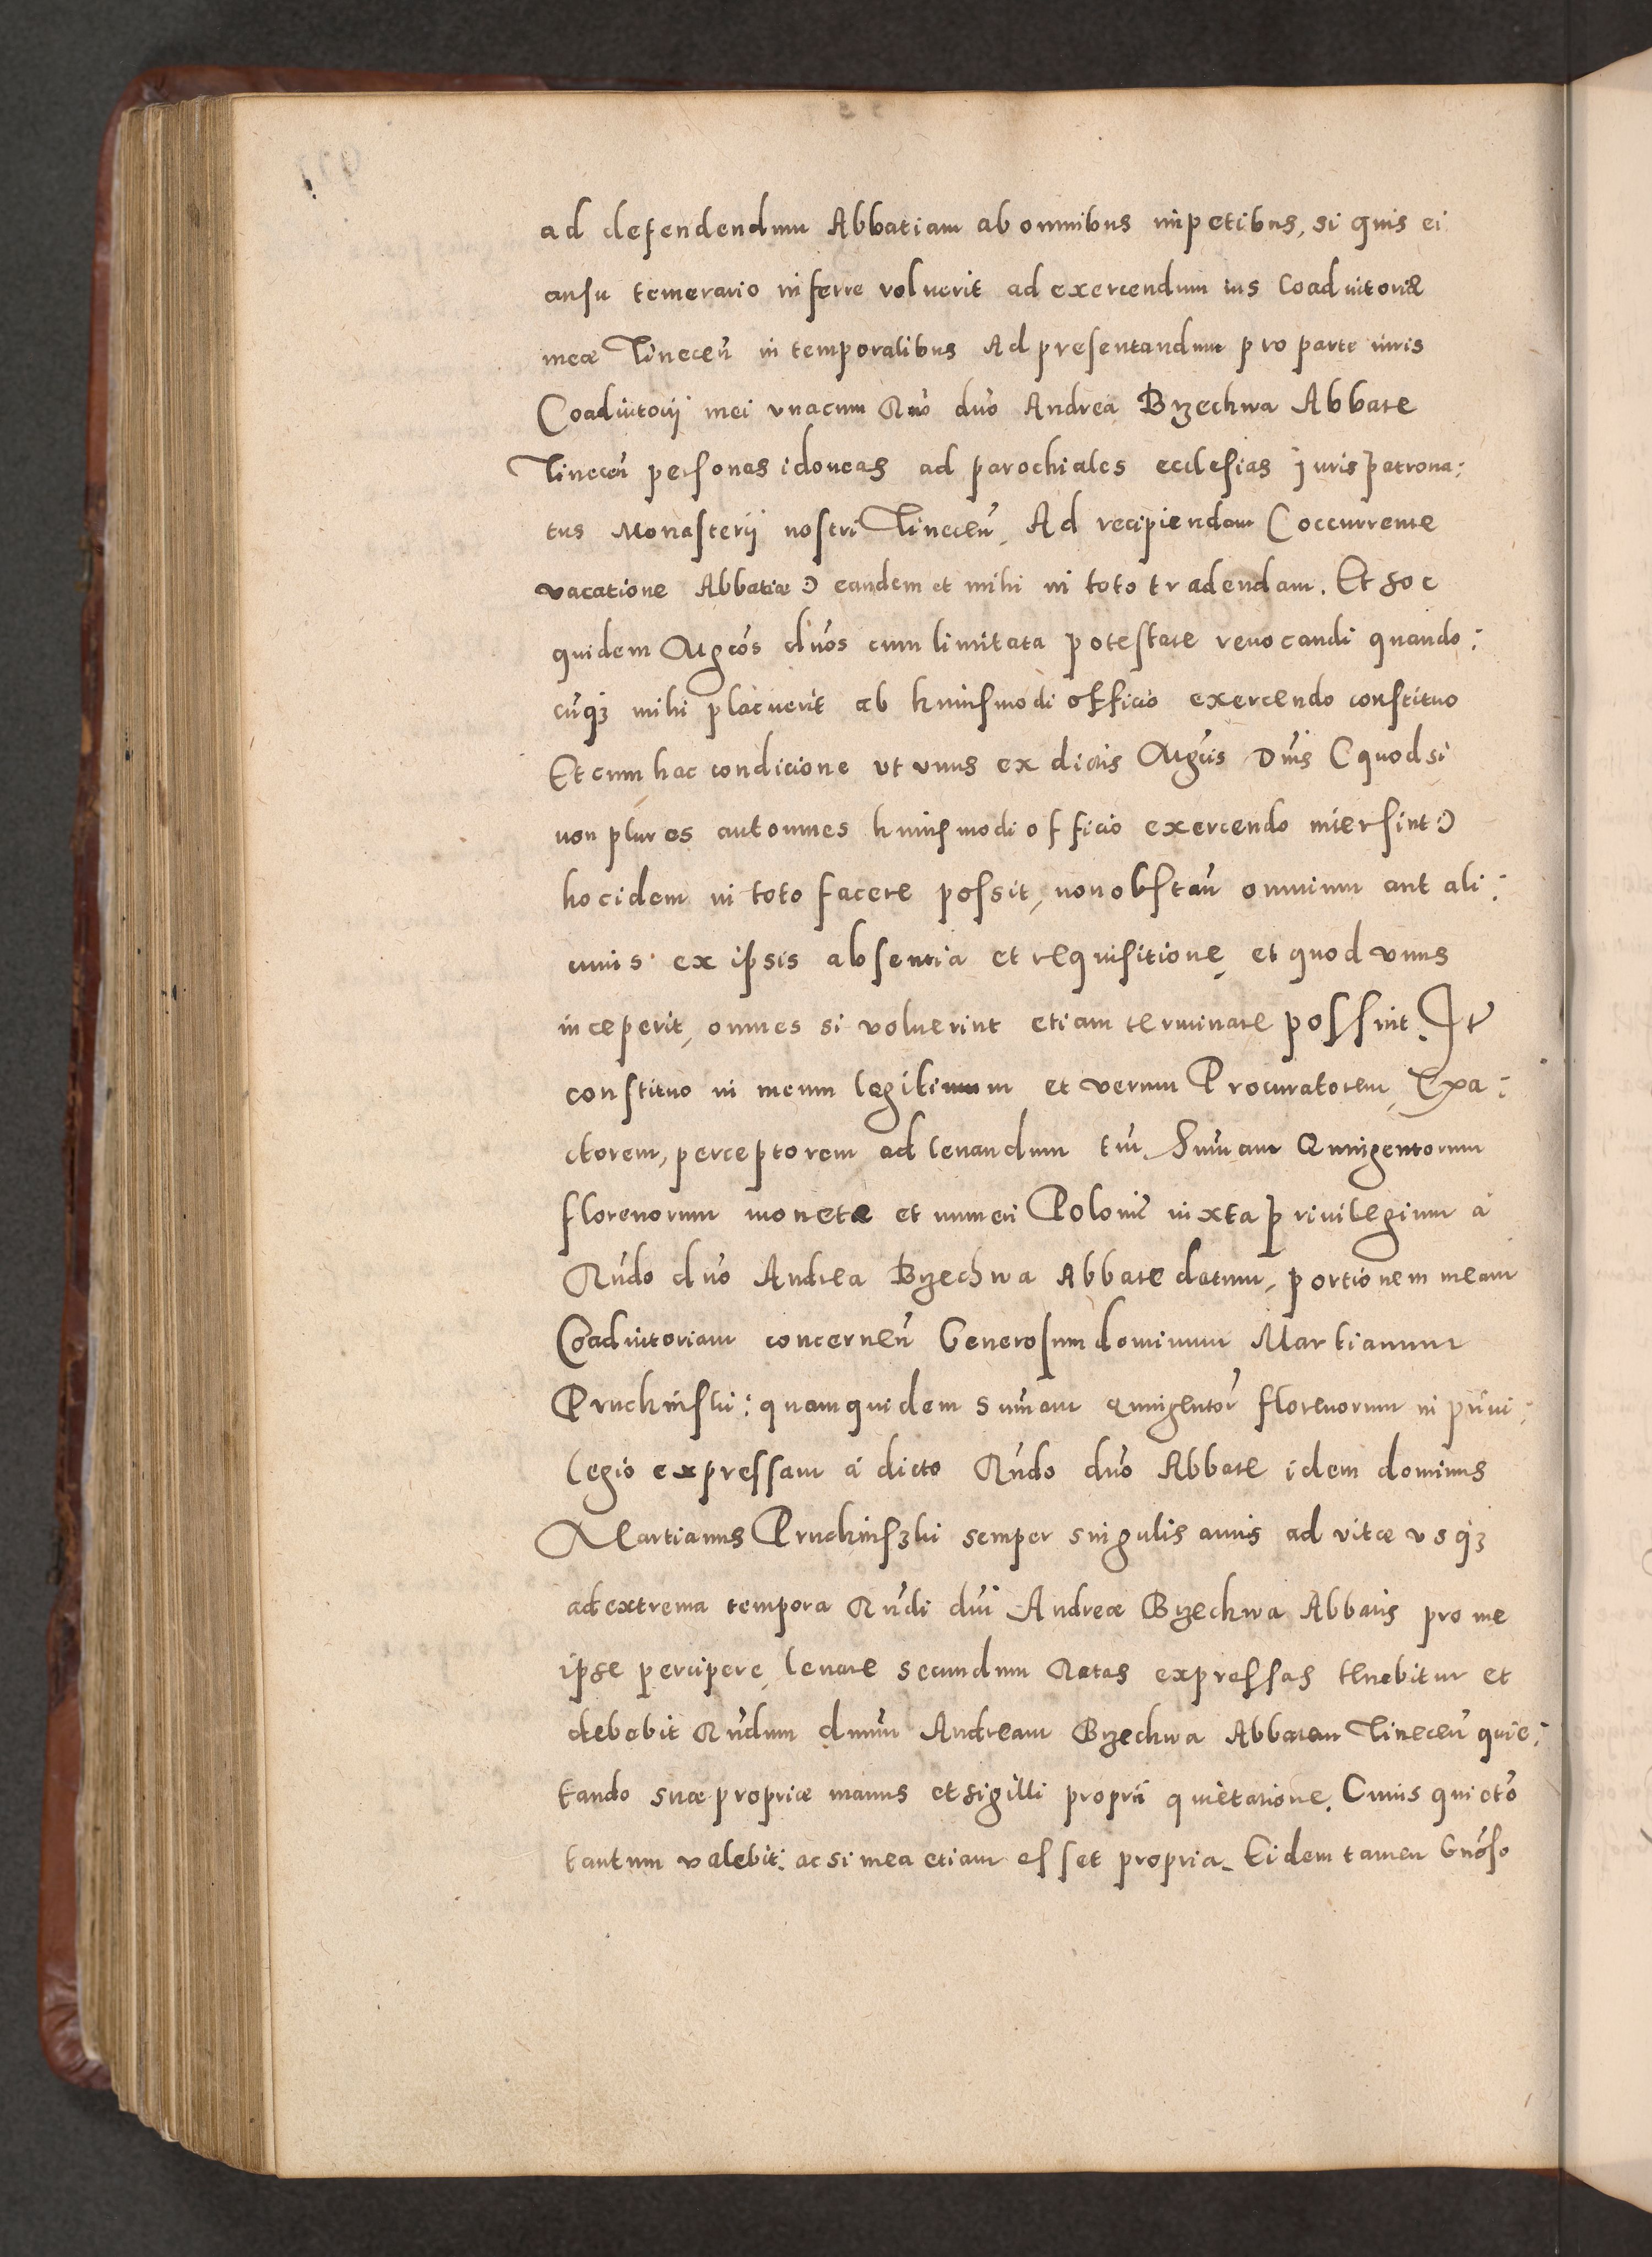 ad defendendum Abbatiam ab omnibus impetibus, si quis ei
ausu temerario inferre voluerit ad exercendum ius Coadiutoriæ
meæ Tineceñ in temporalibus Ad presentandum pro parte iuris
Coadiutorij mei vnacum Rńdo dño Andrea Brzechwa Abbate
Tineceñ personas idoneas ad parochiales ecclesias Jurispatrona:
tus Monasterij nostri Tineceñ, Ad recipiendam (occurrente
vacatione Abbatiæ) eandem et mihi in toto tradendam. Et hoc
quidem Mgcós dńos cum limitata potestate reuocandi quando:
cúqz mihi placuerit ab huiusmodi officio exercendo constituo
Et cum hac condicione vt vnus ex dictis Mgcis Dńis (quod si
non plures aut omnes huiusmodi officio exercendo intersint)
hoc idem in toto facere possit, non obstań omnium aut ali:
cuius ex ipsis absentia et requisitione, et quod vnus
inceperit, omnes si voluerint etiam terminare possint. It
constituo in meum legitimum et verum Procuratorem, Exa:
ctorem, perceptorem ad leuandum tm̃ Sum̃am Quingentorum
florenorum monetæ et numeri Polonic̃ iuxta priuilegium a
Rńdo dńo Andrea Brzechwa Abbate datum, portionem meam
Coadiutoriam concerneñ Generosum dominum Martianum
Pruchinski: quamquidem Sum̃am quingentor̃ florenorum in priui:
legio expressam a dicto Rńdo dńo Abbate idem dominus
Martianus Pruchinszki semper singulis annis ad vitæ vsqz
ad extrema tempora Rńdi dńi Andreæ Brzechwa Abbatis pro me
ipse percipere, leuare secundum Ratas expressas tenebitur et
debebit Rńdum dnum Andream Brzechwa Abbatem Tineceñ quie:
tando suæ propriæ manus et sigilli proprii quietatione. Cuius quietõ
tantum valebit: ac si mea etiam esset propria. Eidem tamen Gnóso